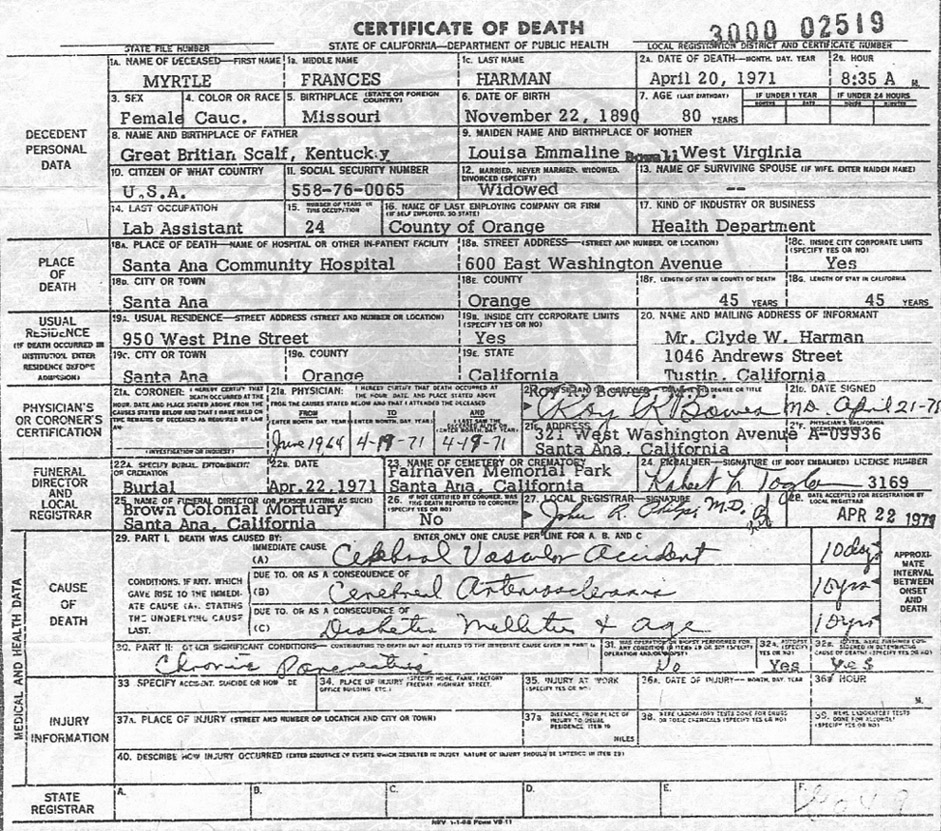 CERTIFICATE OF DEATH
3000 02519
STATE FILE NUMBER
STATE OF CALIFORNIA—DEPARTMENT OF PUBLIC HEALTH
LOCAL REGISTRATION DISTRICT AND CERTIFICATE NUMBER
DECEDENT PERSONAL DATA
1A. NAME OF DECEASED—FIRST NAME 1B. MIDDLE NAME 1C. LAST NAME 2A. DATE OF DEATH—MONTH, DAY, YEAR 2B. HOUR
MYRTLE FRANCES HARMAN April 20, 1971 8:35 A M.
3. SEX 4. COLOR OR RACE 5. BIRTHPLACE (STATE OR FOREIGN COUNTRY) 6. DATE OF BIRTH 7. AGE (LAST BIRTHDAY) IF UNDER 1 YEAR IF UNDER 24 HOURS
Female Cauc. Missouri November 22, 1890 80 YEARS
8. NAME AND BIRTHPLACE OF FATHER 9. MAIDEN NAME AND BIRTHPLACE OF MOTHER
Great Britian Scalf, Kentucky Louisa Emmaline West Virginia
10. CITIZEN OF WHAT COUNTRY 11. SOCIAL SECURITY NUMBER 12. MARRIED, NEVER MARRIED, WIDOWED, DIVORCED (SPECIFY) 13. NAME OF SURVIVING SPOUSE (IF WIFE, ENTER MAIDEN NAME)
U.S.A. 558-76-0065 Widowed --
14. LAST OCCUPATION 15. NUMBER OF YEARS IN THIS OCCUPATION 16. NAME OF LAST EMPLOYING COMPANY OR FIRM (IF SELF EMPLOYED, SO STATE) 17. KIND OF INDUSTRY OR BUSINESS
Lab Assistant 24 County of Orange Health Department
PLACE OF DEATH
18A. PLACE OF DEATH—NAME OF HOSPITAL OR OTHER IN-PATIENT FACILITY 18B. STREET ADDRESS—(STREET AND NUMBER, OR LOCATION) 18C. INSIDE CITY CORPORATE LIMITS (SPECIFY YES OR NO)
Santa Ana Community Hospital 600 East Washington Avenue Yes
18D. CITY OR TOWN 18E. COUNTY 18F. LENGTH OF STAY IN COUNTY OF DEATH 18G. LENGTH OF STAY IN CALIFORNIA
Santa Ana Orange 45 YEARS 45 YEARS
USUAL RESIDENCE (IF DEATH OCCURRED IN INSTITUTION, ENTER RESIDENCE BEFORE ADMISSION)
19A. USUAL RESIDENCE—STREET ADDRESS (STREET AND NUMBER OR LOCATION) 19B. INSIDE CITY CORPORATE LIMITS (SPECIFY YES OR NO) 20. NAME AND MAILING ADDRESS OF INFORMANT
950 West Pine Street Yes Mr. Clyde W. Harman
19C. CITY OR TOWN 19D. COUNTY 19E. STATE 1046 Andrews Street
Santa Ana Orange California Tustin, California
PHYSICIAN'S OR CORONER'S CERTIFICATION
21A. CORONER: I HEREBY CERTIFY THAT DEATH OCCURRED AT THE HOUR, DATE AND PLACE STATED ABOVE FROM THE CAUSES STATED BELOW AND THAT I HAVE HELD ON THE REMAINS OF DECEASED AS REQUIRED BY LAW AN
(INVESTIGATION OR INQUEST)
21B. PHYSICIAN: I HEREBY CERTIFY THAT DEATH OCCURRED AT THE HOUR, DATE, AND PLACE STATED ABOVE FROM THE CAUSES STATED BELOW AND THAT I ATTENDED THE DECEASED
FROM TO AND
June 1964 4-19-71 4-19-71
Roy R. Bowes M.D. DEGREE OR TITLE 21D. DATE SIGNED
Roy R Bowes MD. April 21-71
21E. ADDRESS 21F. PHYSICIAN'S CALIFORNIA LICENSE NUMBER
321 West Washington Avenue A-09936
Santa Ana, California
FUNERAL DIRECTOR AND LOCAL REGISTRAR
22A. SPECIFY BURIAL, ENTOMBMENT OR CREMATION 22B. DATE 23. NAME OF CEMETERY OR CREMATORY 24. EMBALMER—SIGNATURE (IF BODY EMBALMED) LICENSE NUMBER
Burial Apr. 22, 1971 Fairhaven Memorial Park Santa Ana, California 3169
25. NAME OF FUNERAL DIRECTOR (OR PERSON ACTING AS SUCH) 26. IF NOT CERTIFIED BY CORONER, WAS THIS DEATH REPORTED TO CORONER? (SPECIFY YES OR NO) 27. LOCAL REGISTRAR—SIGNATURE 28. DATE ACCEPTED FOR REGISTRATION BY LOCAL REGISTRAR
Brown Colonial Mortuary Santa Ana, California No John R. Philp, M.D. APR 22 1971
MEDICAL AND HEALTH DATA
CAUSE OF DEATH
29. PART I. DEATH WAS CAUSED BY: ENTER ONLY ONE CAUSE PER LINE FOR A, B, AND C
IMMEDIATE CAUSE
(A) Cerebral Vascular Accident 10 days
CONDITIONS, IF ANY, WHICH GAVE RISE TO THE IMMEDIATE CAUSE (A), STATING THE UNDERLYING CAUSE LAST.
DUE TO, OR AS A CONSEQUENCE OF
(B) Cerebral Arteriosclerosis 10 yrs
DUE TO, OR AS A CONSEQUENCE OF
(C) Diabetes Mellitus & Age 10 yrs
APPROXIMATE INTERVAL BETWEEN ONSET AND DEATH
30. PART II: OTHER SIGNIFICANT CONDITIONS—CONTRIBUTING TO DEATH BUT NOT RELATED TO THE IMMEDIATE CAUSE GIVEN IN PART I
Chronic Pancreatitis No Yes Yes
INJURY INFORMATION
33 SPECIFY ACCIDENT, SUICIDE OR HOMICIDE 34. PLACE OF INJURY (SPECIFY HOME, FARM, FACTORY, FREEWAY, HIGHWAY, STREET, OFFICE BUILDING, ETC.) 35. INJURY AT WORK (SPECIFY YES OR NO) 36A. DATE OF INJURY—MONTH, DAY, YEAR 36B HOUR
M.
37A. PLACE OF INJURY (STREET AND NUMBER OR LOCATION AND CITY OR TOWN) 37B. DISTANCE FROM PLACE OF INJURY TO USUAL RESIDENCE, ITEM 19 MILES 38. WERE LABORATORY TESTS DONE FOR DRUGS OR TOXIC CHEMICALS (SPECIFY YES OR NO) 39. WERE LABORATORY TESTS DONE FOR ALCOHOL? (SPECIFY YES OR NO)
40. DESCRIBE HOW INJURY OCCURRED (ENTER SEQUENCE OF EVENTS WHICH RESULTED IN INJURY. NATURE OF INJURY SHOULD BE ENTERED IN ITEM 29)
STATE REGISTRAR
A. B. C. D. E. F.